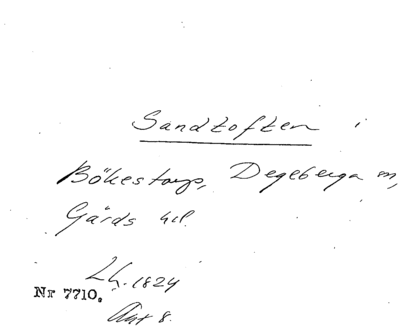 Sandtoften i
Bökestorp, Degeberga sn,
Gärds hd.
Lh. 1824
Nr 7710.
Akt 8.